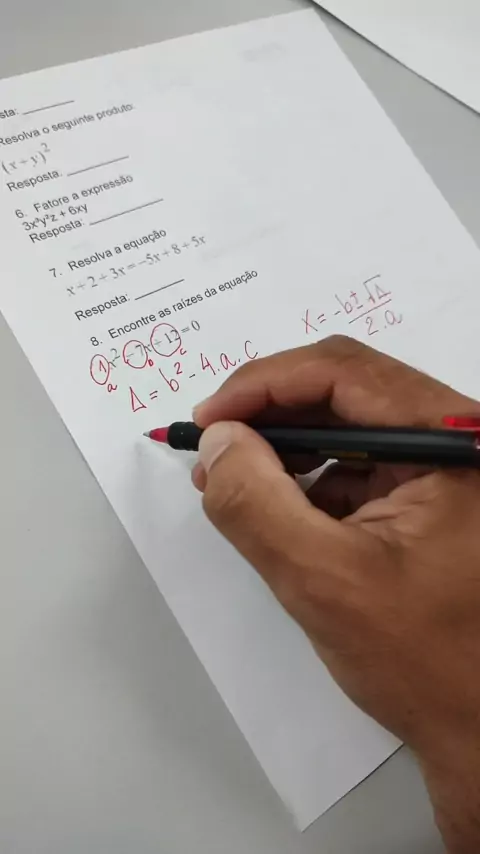 sta:
Resolva o seguinte produto:
(x + y)²
Resposta:
6. Fatore a expressão
3x²y²z + 6xy
Resposta:
7. Resolva a equação
x + 2 + 3x = −5x + 8 + 5x
Resposta:
8. Encontre as raízes da equação
1x² − 7x + 12 = 0
a b c
Δ = b² - 4.a.c
x = -b ± √Δ
2.a